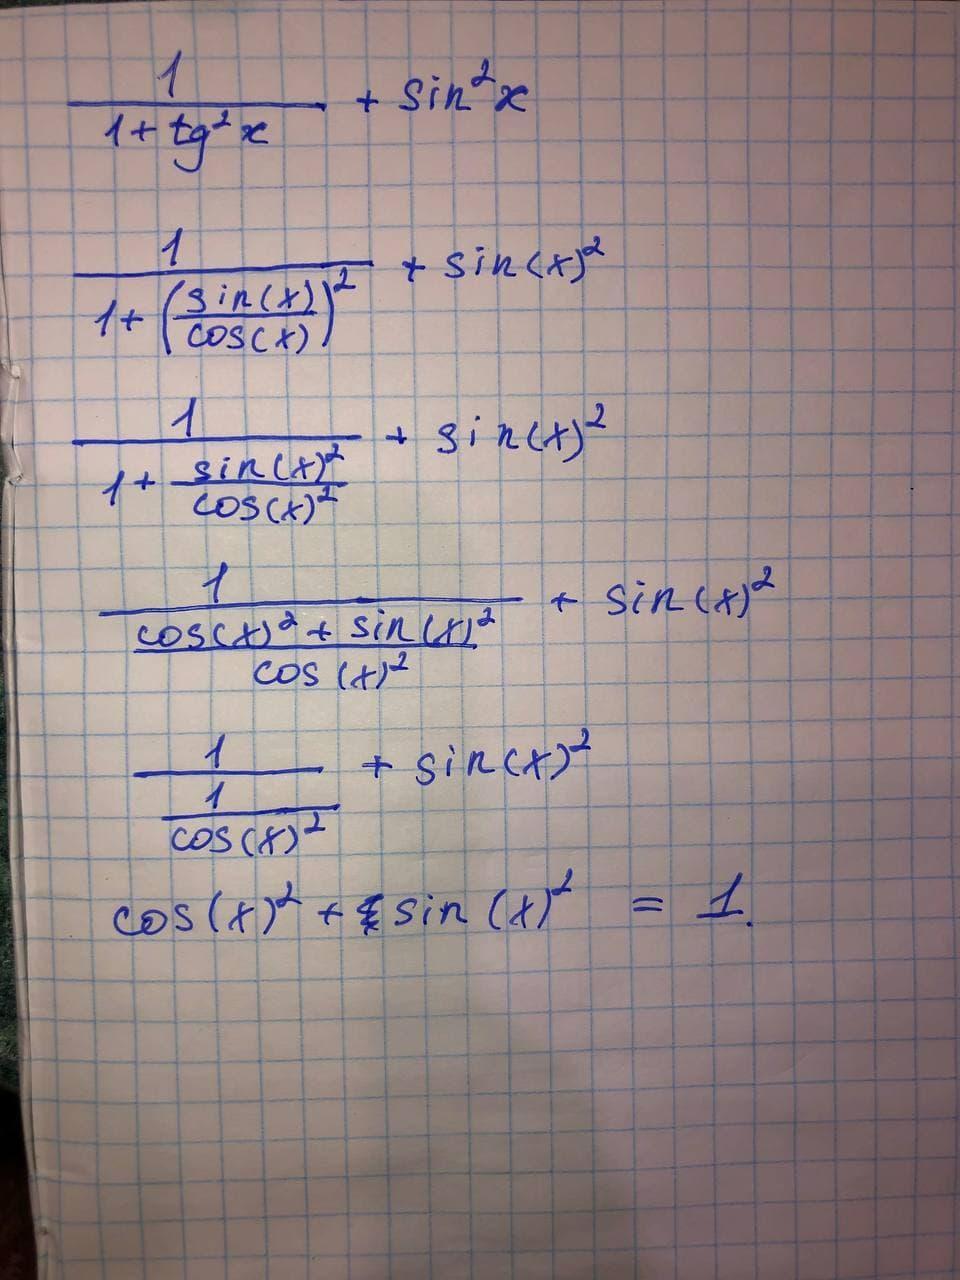 1/(1 + tg²x) + sin²x
1/(1 + (sin(x)/cos(x))²) + sin(x)²
1/(1 + sin(x)²/cos(x)²) + sin(x)²
1/((cos(x)² + sin(x)²)/cos(x)²) + sin(x)²
1/(1/cos(x)²) + sin(x)²
cos(x)² + sin(x)² = 1.